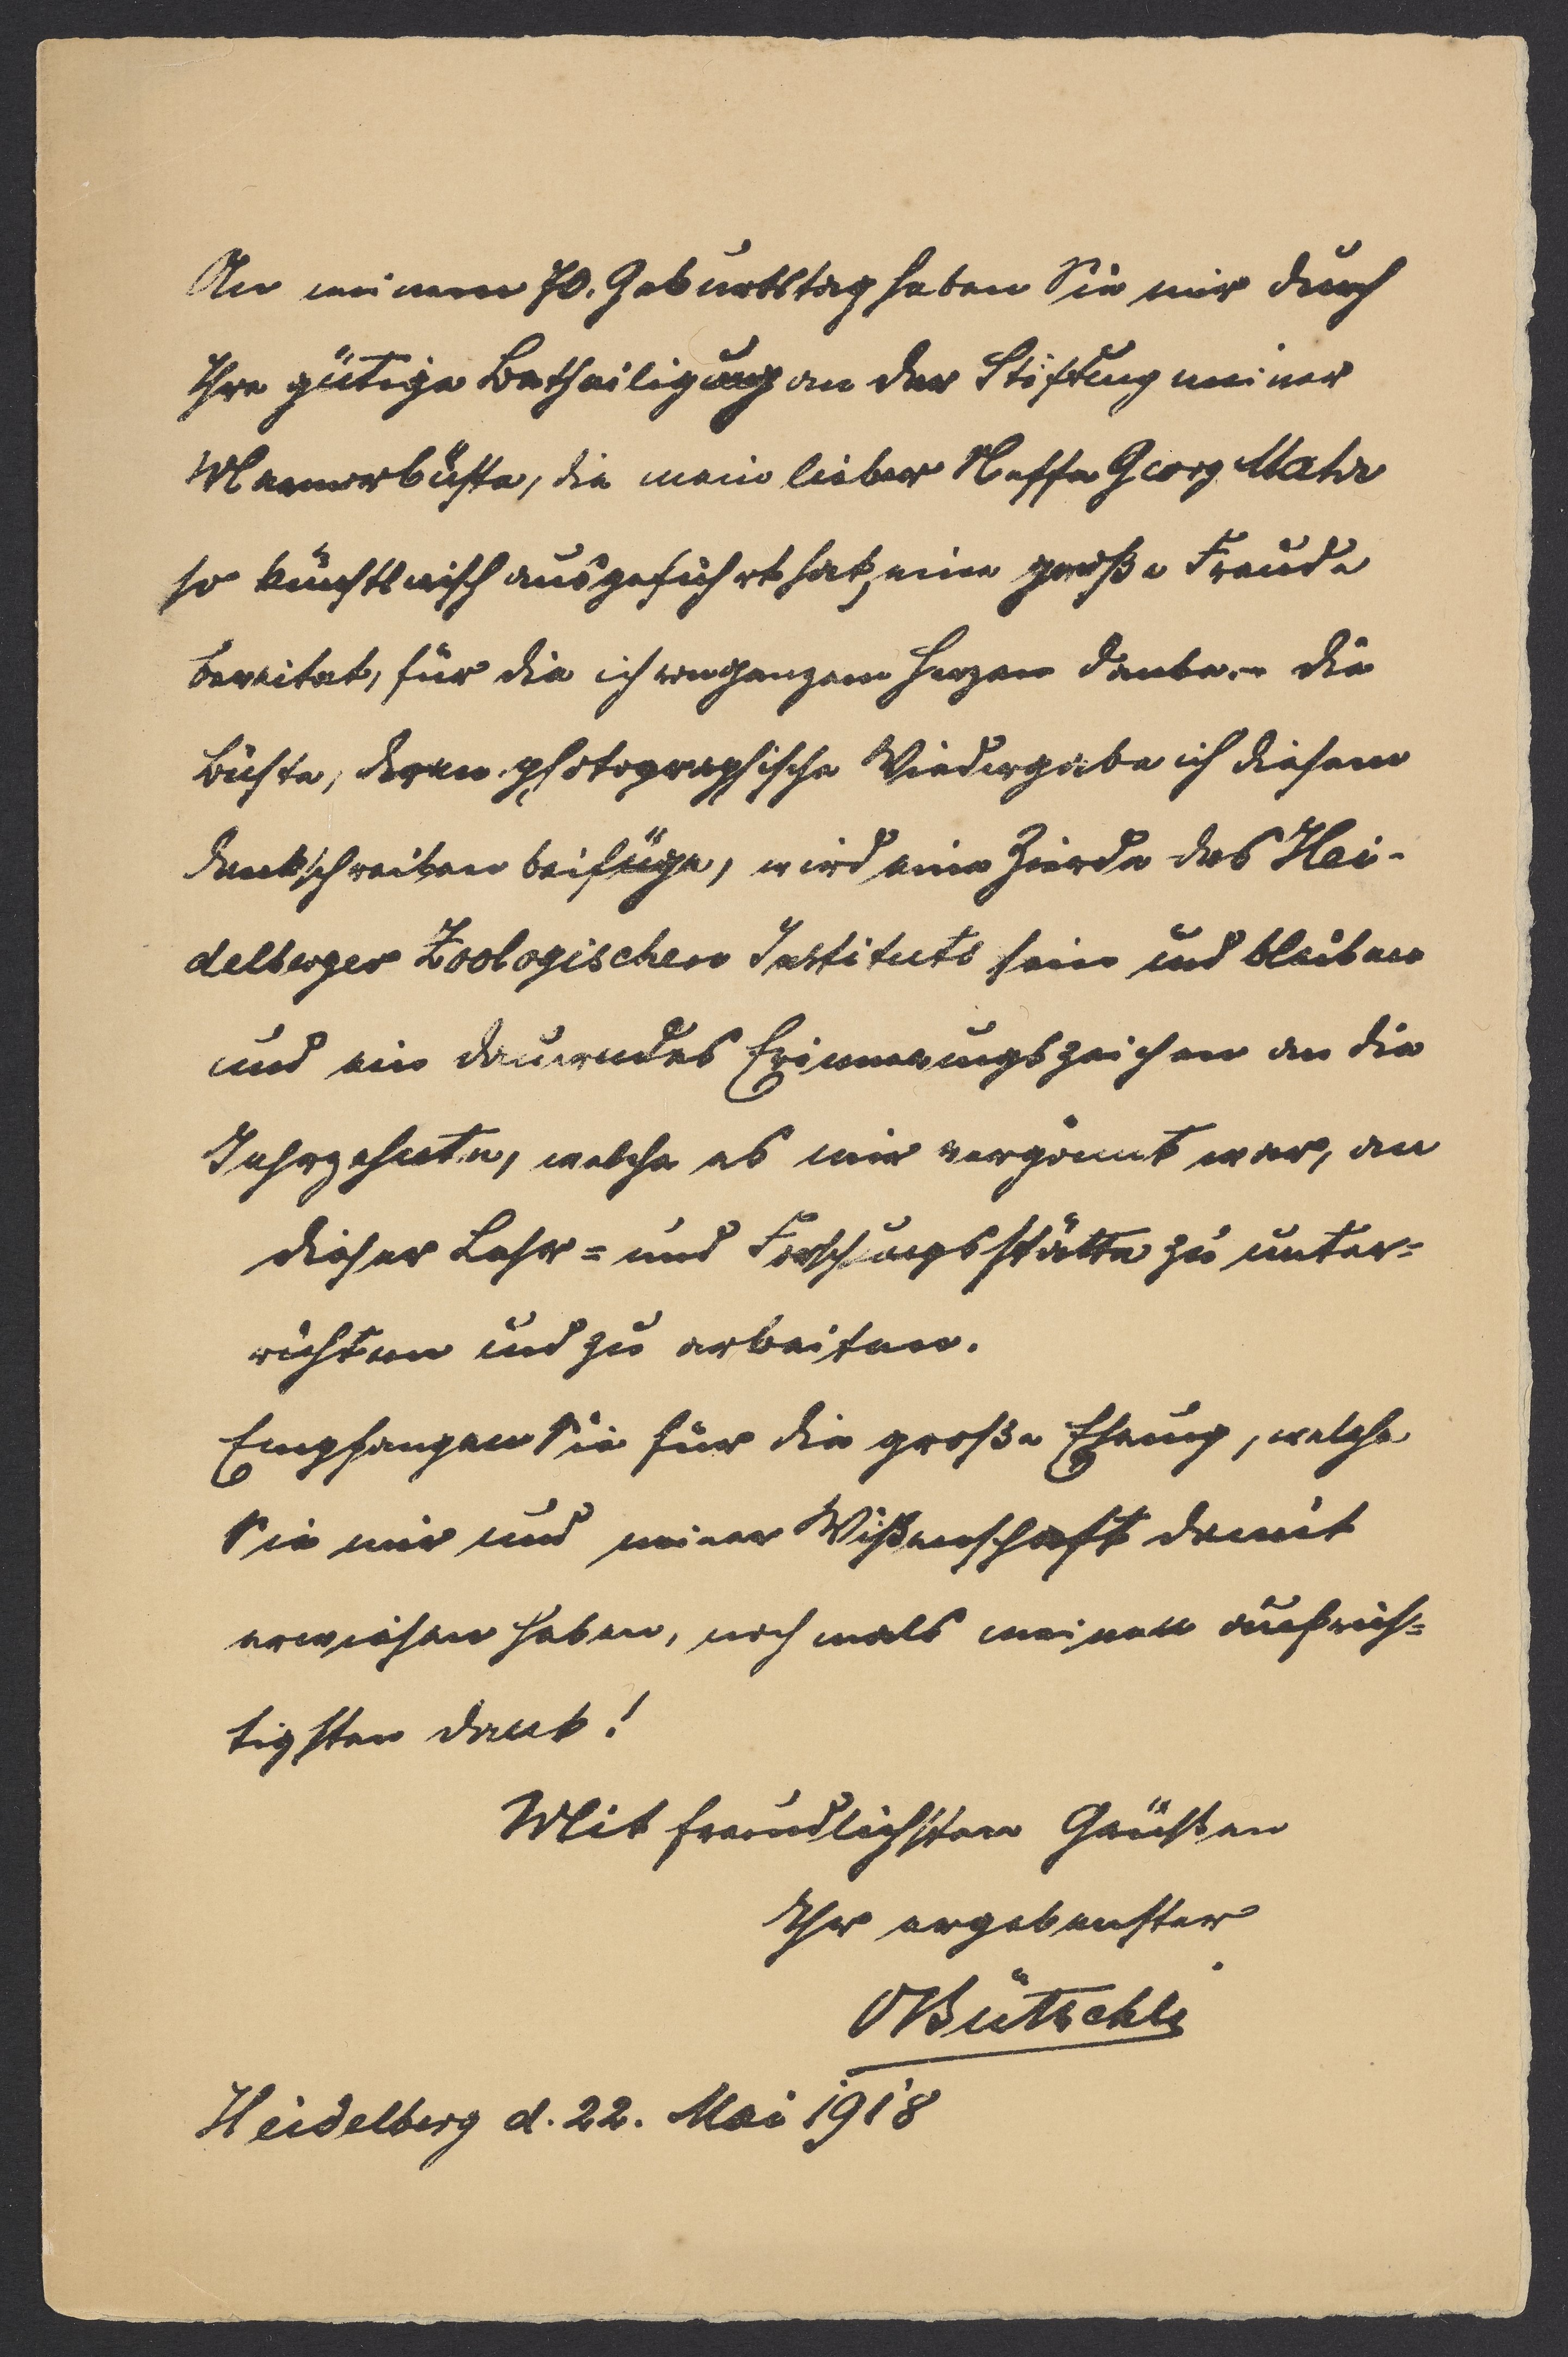 An meinem 70. Geburtstag haben Sie mir durch
Ihre gütige Betheiligung an der Stiftung meiner
Marmorbüste, die mein lieber Neffe Georg Mahr
so künstlerisch ausgeführt hat, eine große Freude
bereitet, für die ich von ganzem Herzen danke. - Die
Büste, deren photographische Wiedergabe ich diesem
Dankschreiben beifüge, wird eine Zierde des Hei-
delberger Zoologischen Instituts sein und bleiben
und ein dauerndes Erinnerungszeichen an die
Jahrzehnte, welche es mir vergönnt war, an
dieser Lehr= und Forschungsstätte zu unter=
richten und zu arbeiten.
Empfangen Sie für die große Ehrung, welche
Sie mir und meiner Wißenschaft damit
erwiesen haben, nochmals meinen aufrich=
tigsten Dank!
Mit freundlichsten Grüßen
Ihr ergebenster
O Bütschli
Heidelberg d. 22. Mai 1918